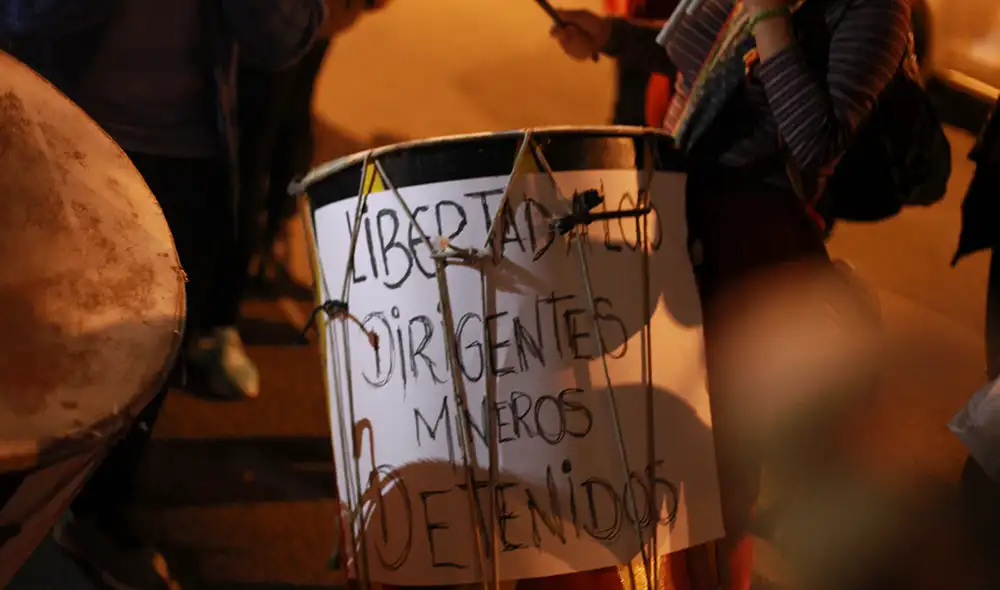 LIBERTAD A LOS
DIRIGENTES
MINEROS
DETENIDOS